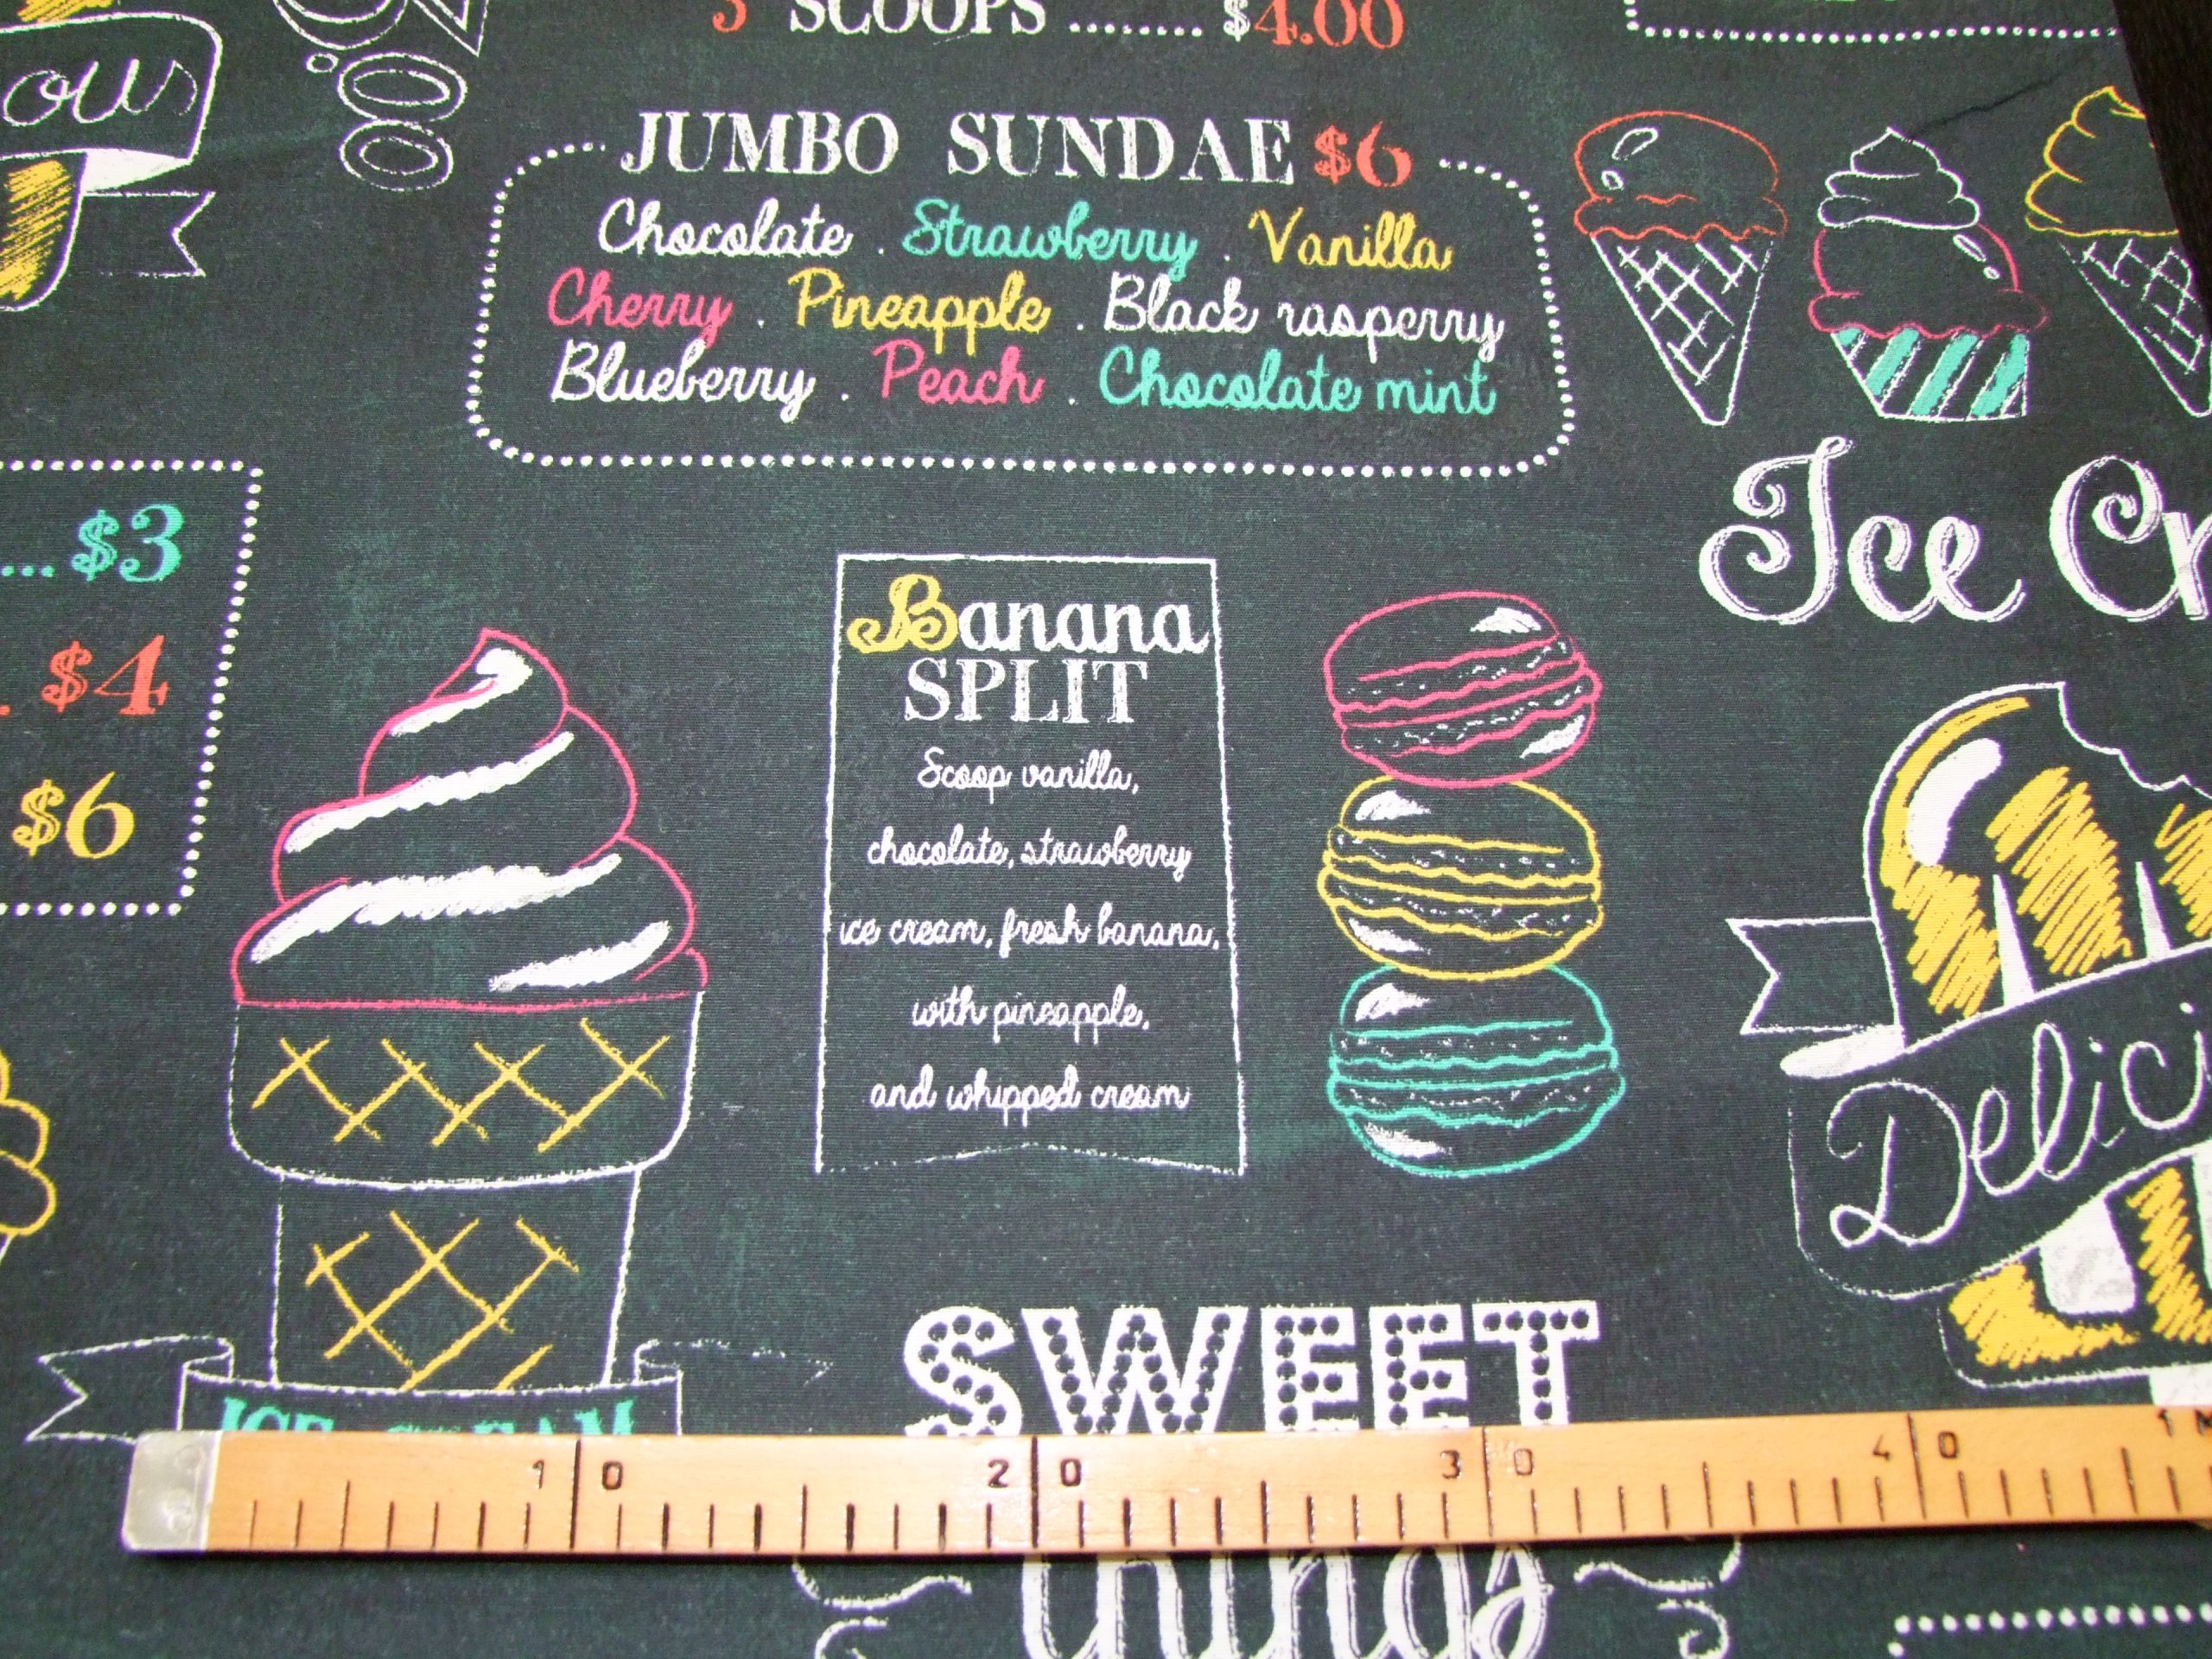 3 SCOOPS ......... $4.00
ous
JUMBO SUNDAE $6
Chocolate . Strawberry . Vanilla
Cherry . Pineapple . Black rasperry
Blueberry . Peach . Chocolate mint
Ice Cr
... $3
. $4
$6
Banana
SPLIT
Scoop vanilla,
chocolate, strawberry
ice cream, fresh banana,
with pineapple,
and whipped cream
Delici
SWEET
ICE CREAM
10 20 30 40 1M
things